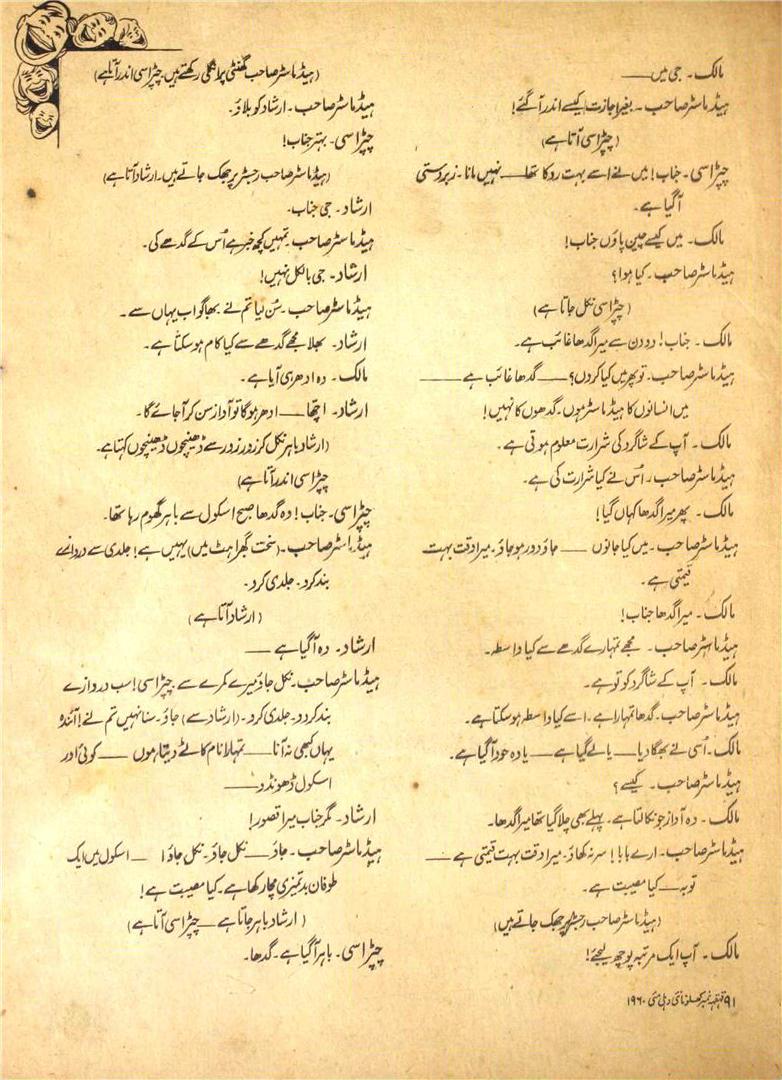 مالک۔ جی میں ——
ہیڈ ماسٹر صاحب۔ بغیر اجازت کیسے اندر آگئے!
(چپڑاسی آتا ہے)
چپڑاسی۔ جناب! میں نے اسے بہت روکا تھا —— نہیں مانا۔ زبردستی
آگیا ہے۔
مالک۔ میں کیسے چین پاؤں جناب!
ہیڈ ماسٹر صاحب۔ کیا ہوا؟
(چپڑاسی نکل جاتا ہے)
مالک۔ جناب! دو دن سے میرا گدھا غائب ہے۔
ہیڈ ماسٹر صاحب۔ تو پھر میں کیا کروں؟ —— گدھا غائب ہے ——
میں انسانوں کا ہیڈ ماسٹر ہوں۔ گدھوں کا نہیں!
مالک۔ آپ کے شاگرد کی شرارت معلوم ہوتی ہے۔
ہیڈ ماسٹر صاحب۔ اس نے کیا شرارت کی ہے۔
مالک۔ پھر میرا گدھا کہاں گیا!
ہیڈ ماسٹر صاحب۔ میں کیا جانوں —— جاؤ دور ہو جاؤ۔ میرا وقت بہت
قیمتی ہے۔
مالک۔ میرا گدھا جناب!
ہیڈ ماسٹر صاحب۔ مجھے تمہارے گدھے سے کیا واسطہ۔
مالک۔ آپ کے شاگرد کو تو ہے۔
ہیڈ ماسٹر صاحب۔ گدھا تمہارا ہے۔ اسے کیا واسطہ ہو سکتا ہے۔
مالک۔ اُسی نے بھگا دیا —— یا لے گیا ہے —— یا وہ خود آ گیا ہے۔
ہیڈ ماسٹر صاحب۔ کیسے؟
مالک۔ وہ آواز جو نکالتا ہے۔ پہلے بھی چلا گیا تھا میرا گدھا۔
ہیڈ ماسٹر صاحب۔ ارے بابا! سر نہ کھاؤ۔ میرا وقت بہت قیمتی ہے ——
توبہ —— کیا مصیبت ہے۔
(ہیڈ ماسٹر صاحب رجسٹر پر جھک جاتے ہیں)
مالک۔ آپ ایک مرتبہ پوچھ لیجئے!
(ہیڈ ماسٹر صاحب گھنٹی پر انگلی رکھتے ہیں۔ چپڑاسی اندر آتا ہے)
ہیڈ ماسٹر صاحب۔ ارشاد کو بلاؤ۔
چپڑاسی۔ بہتر جناب!
(ہیڈ ماسٹر صاحب رجسٹر پر جھک جاتے ہیں۔ ارشاد آتا ہے)
ارشاد۔ جی جناب۔
ہیڈ ماسٹر صاحب۔ تمہیں کچھ خبر ہے اُس کے گدھے کی۔
ارشاد۔ جی بالکل نہیں!
ہیڈ ماسٹر صاحب۔ سُن لیا تم نے بھاگو اب یہاں سے۔
ارشاد۔ بھلا مجھے گدھے سے کیا کام ہو سکتا ہے۔
مالک۔ وہ ادھر ہی آیا ہے۔
ارشاد۔ اچھا —— ادھر ہوگا تو آواز سن کر آجائے گا۔
(ارشاد باہر نکل کر زور زور سے ڈھینچوں ڈھینچوں کہتا ہے۔
چپڑاسی اندر آتا ہے)
چپڑاسی۔ جناب! وہ گدھا صبح اسکول سے باہر گھوم رہا تھا۔
ہیڈ ماسٹر صاحب۔ (سخت گھبراہٹ میں) یہیں ہے! جلدی سے دروازے
بند کرو۔ جلدی کرو۔
(ارشاد آتا ہے)
ارشاد۔ وہ آگیا ہے ——
ہیڈ ماسٹر صاحب۔ نکل جاؤ میرے کمرے سے چپڑاسی! سب دروازے
بند کردو۔ جلدی کرو۔ (ارشاد سے) جاؤ۔ سنا نہیں تم نے! آئندہ
یہاں کبھی نہ آنا —— تمہارا نام کاٹے دیتا ہوں —— کوئی اور
اسکول ڈھونڈو ——
ارشاد۔ مگر جناب میرا قصور!
ہیڈ ماسٹر صاحب۔ جاؤ —— نکل جاؤ۔ نکل جاؤ! —— اسکول میں ایک
طوفان بدتمیزی مچا رکھا ہے۔ کیا مصیبت ہے!
(ارشاد باہر جاتا ہے —— چپڑاسی آتا ہے)
چپڑاسی۔ باہر آگیا ہے۔ گدھا۔
۹۱ قہقہہ نمبر کھلونا نئی دہلی مئی ۱۹۶۰